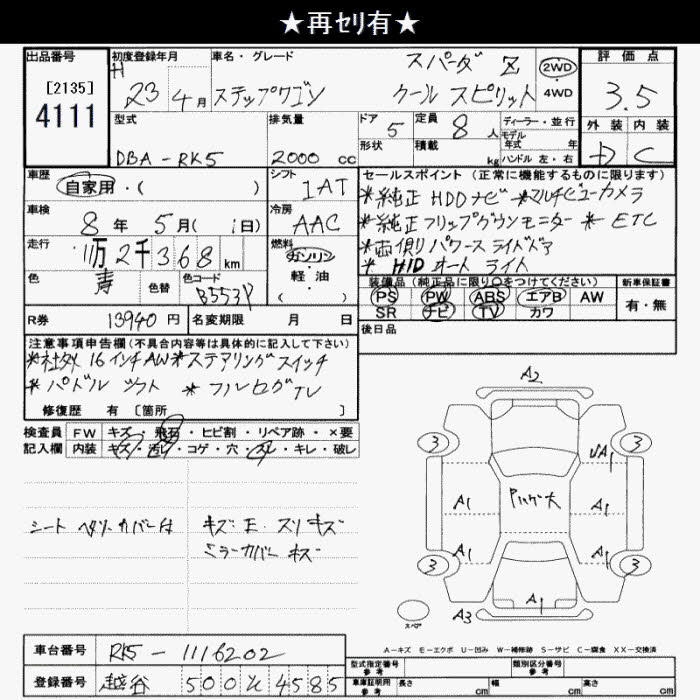 ★再セリ有★
出品番号
[2135]
4111
初度登録年月
H 23 4月
車名・グレード
ステップワゴン
スパーダ Z
クールスピリット
2WD
4WD
評価点
3.5
外装 内装
D C
型式
DBA-RK5
排気量
2000 cc
ドア
5
形状
定員
8 人
積載
kg
ディーラー・並行
モデル
年式 年
ハンドル 左・右
車歴
自家用・( )
シフト
IAT
車検
8年 5月( 日)
冷房
AAC
走行
11万2千368 km
燃料
ガソリン
軽・油
( )
色
青
色替
色コード
B553P
セールスポイント(正常に機能するものに限ります)
*純正HDDナビ *マルチビューカメラ
*純正フリップダウンモニター * ETC
*両側パワースライドドア
* HIDオートライト
装備品(純正品に限り○をつけてください)
PS PW ABS エアB AW
SR ナビ TV カワ
新車保証書
有・無
R券 13940円
名変期限 月 日
後日品
注意事項申告欄(不具合内容等は具体的に記入して下さい)
*社外16インチAW*ステアリングスイッチ
*パドルシフト *フルセグTV
修復歴 有 [箇所 ]
検査員
記入欄
FW キズ・飛石・ヒビ割・リペア跡・×要
内装 キズ・汚レ・コゲ・穴・スレ・キレ・破レ
シート ヘタリ カバー付
キズ E スリキズ
ミラーカバー キズ
A2
3 3
UA1
A1 A1
A1 A1
3 3
A1
A3
スペア
A-キズ E-エクボ U-凹み W-補修跡 S-サビ C-腐食 XX-交換済
車台番号 RK5-1116202
登録番号 越谷 500 4585
型式指定番号
参考
類別区分番号
参考
車庫証明用
参考
長さ cm
幅 cm
高さ cm